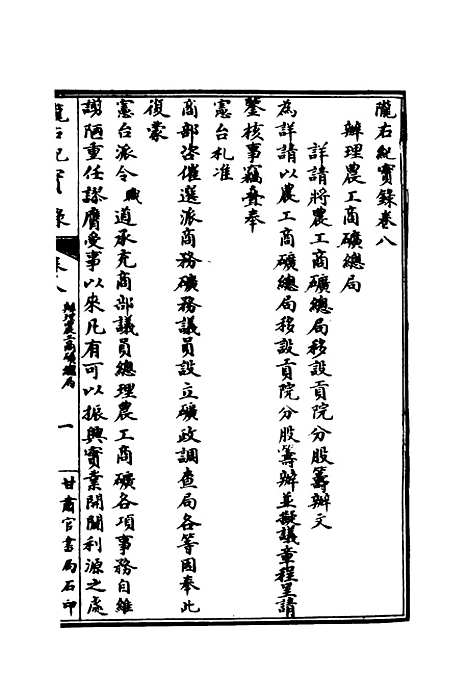 隴右紀實錄卷八
辦理農工商礦總局
詳請將農工商礦總局移設貢院分股籌辦文
為詳請以農工商礦總局移設貢院分股籌辦並擬議章程呈請
鑒核事竊彝奉
憲台札准
商部咨催選派商務礦務議員設立礦政調查局各等因奉此
復蒙
憲台派令職道承充商部議員總理農工商礦各項事務自維
謭陋重任謬膺受事以來凡有可以振興實業開闢利源之處
隴右紀實錄 卷八 辦理農工商礦總局 一 甘肅官書局石印